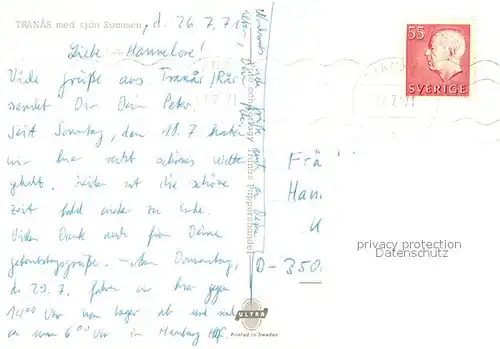 TRANÅS med sjön Sommen, d. 26.7.71
Liebe Hannelore!
Viele Grüße aus Tranås/
sendet Dir Dein Peter.
Seit Sonntag, dem 18.7 haben
wir hier recht schönes Wetter
gehabt. Leider ist die schöne
Zeit bald wieder zu Ende.
Vielen Dank auch für Deine
Geburtstagsgrüße. Am Donnerstag,
d. 29.7. fahren wir hier gegen
14.00 Uhr vom Lager ab und sind
so um 6.00 Uhr in Hamburg Hbf.
Grüße auch an Deine
Tranås Pappershandel
ULTRA
Printed in Sweden
55
SVERIGE
Frä
Han
D-350
privacy protection
Datenschutz